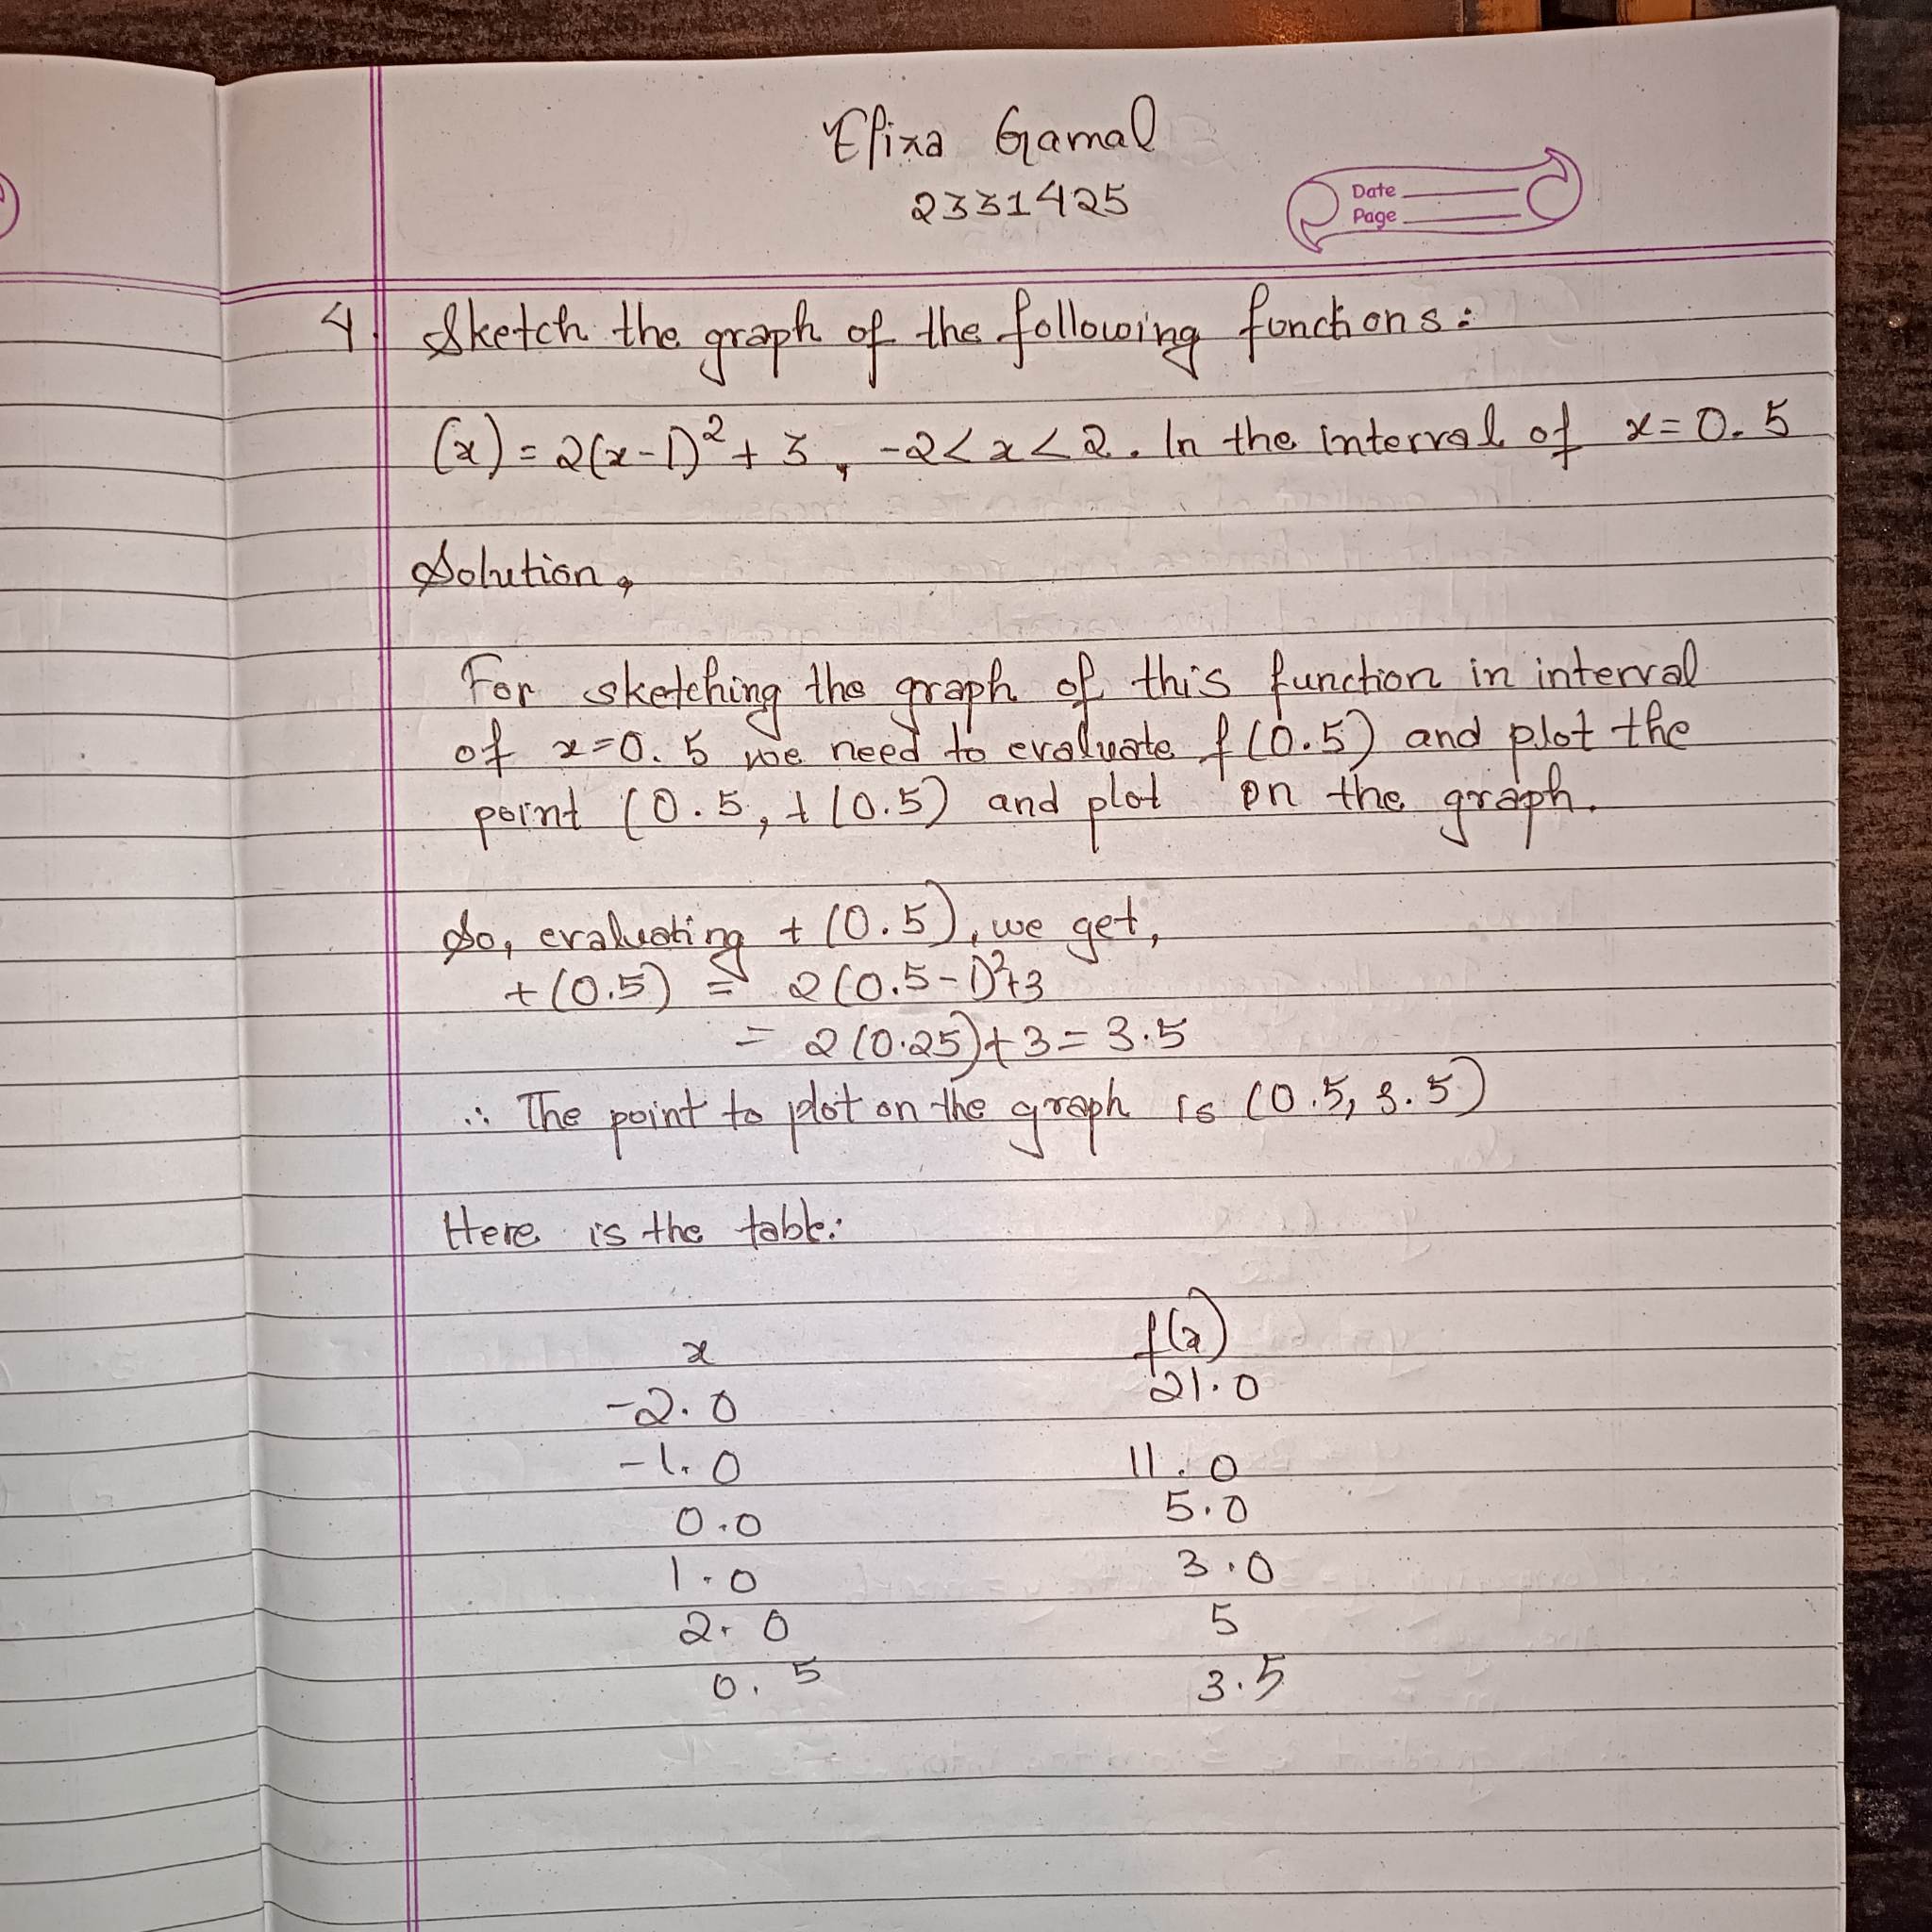 Elixa Gamal
2331425
Date
Page
4. Sketch the graph of the following functions:
(x) = 2(x-1)² + 3, -2 < x < 2. In the interval of x = 0.5
Solution,
For sketching the graph of this function in interval
of x=0.5 we need to evaluate f(0.5) and plot the
point (0.5, + (0.5) and plot on the graph.
So, evaluating + (0.5), we get,
+(0.5) = 2(0.5-1)²+3
= 2(0.25)+3 = 3.5
∴ The point to plot on the graph is (0.5, 3.5)
Here is the table:
x f(x)
-2.0 21.0
-1.0 11.0
0.0 5.0
1.0 3.0
2.0 5
0.5 3.5